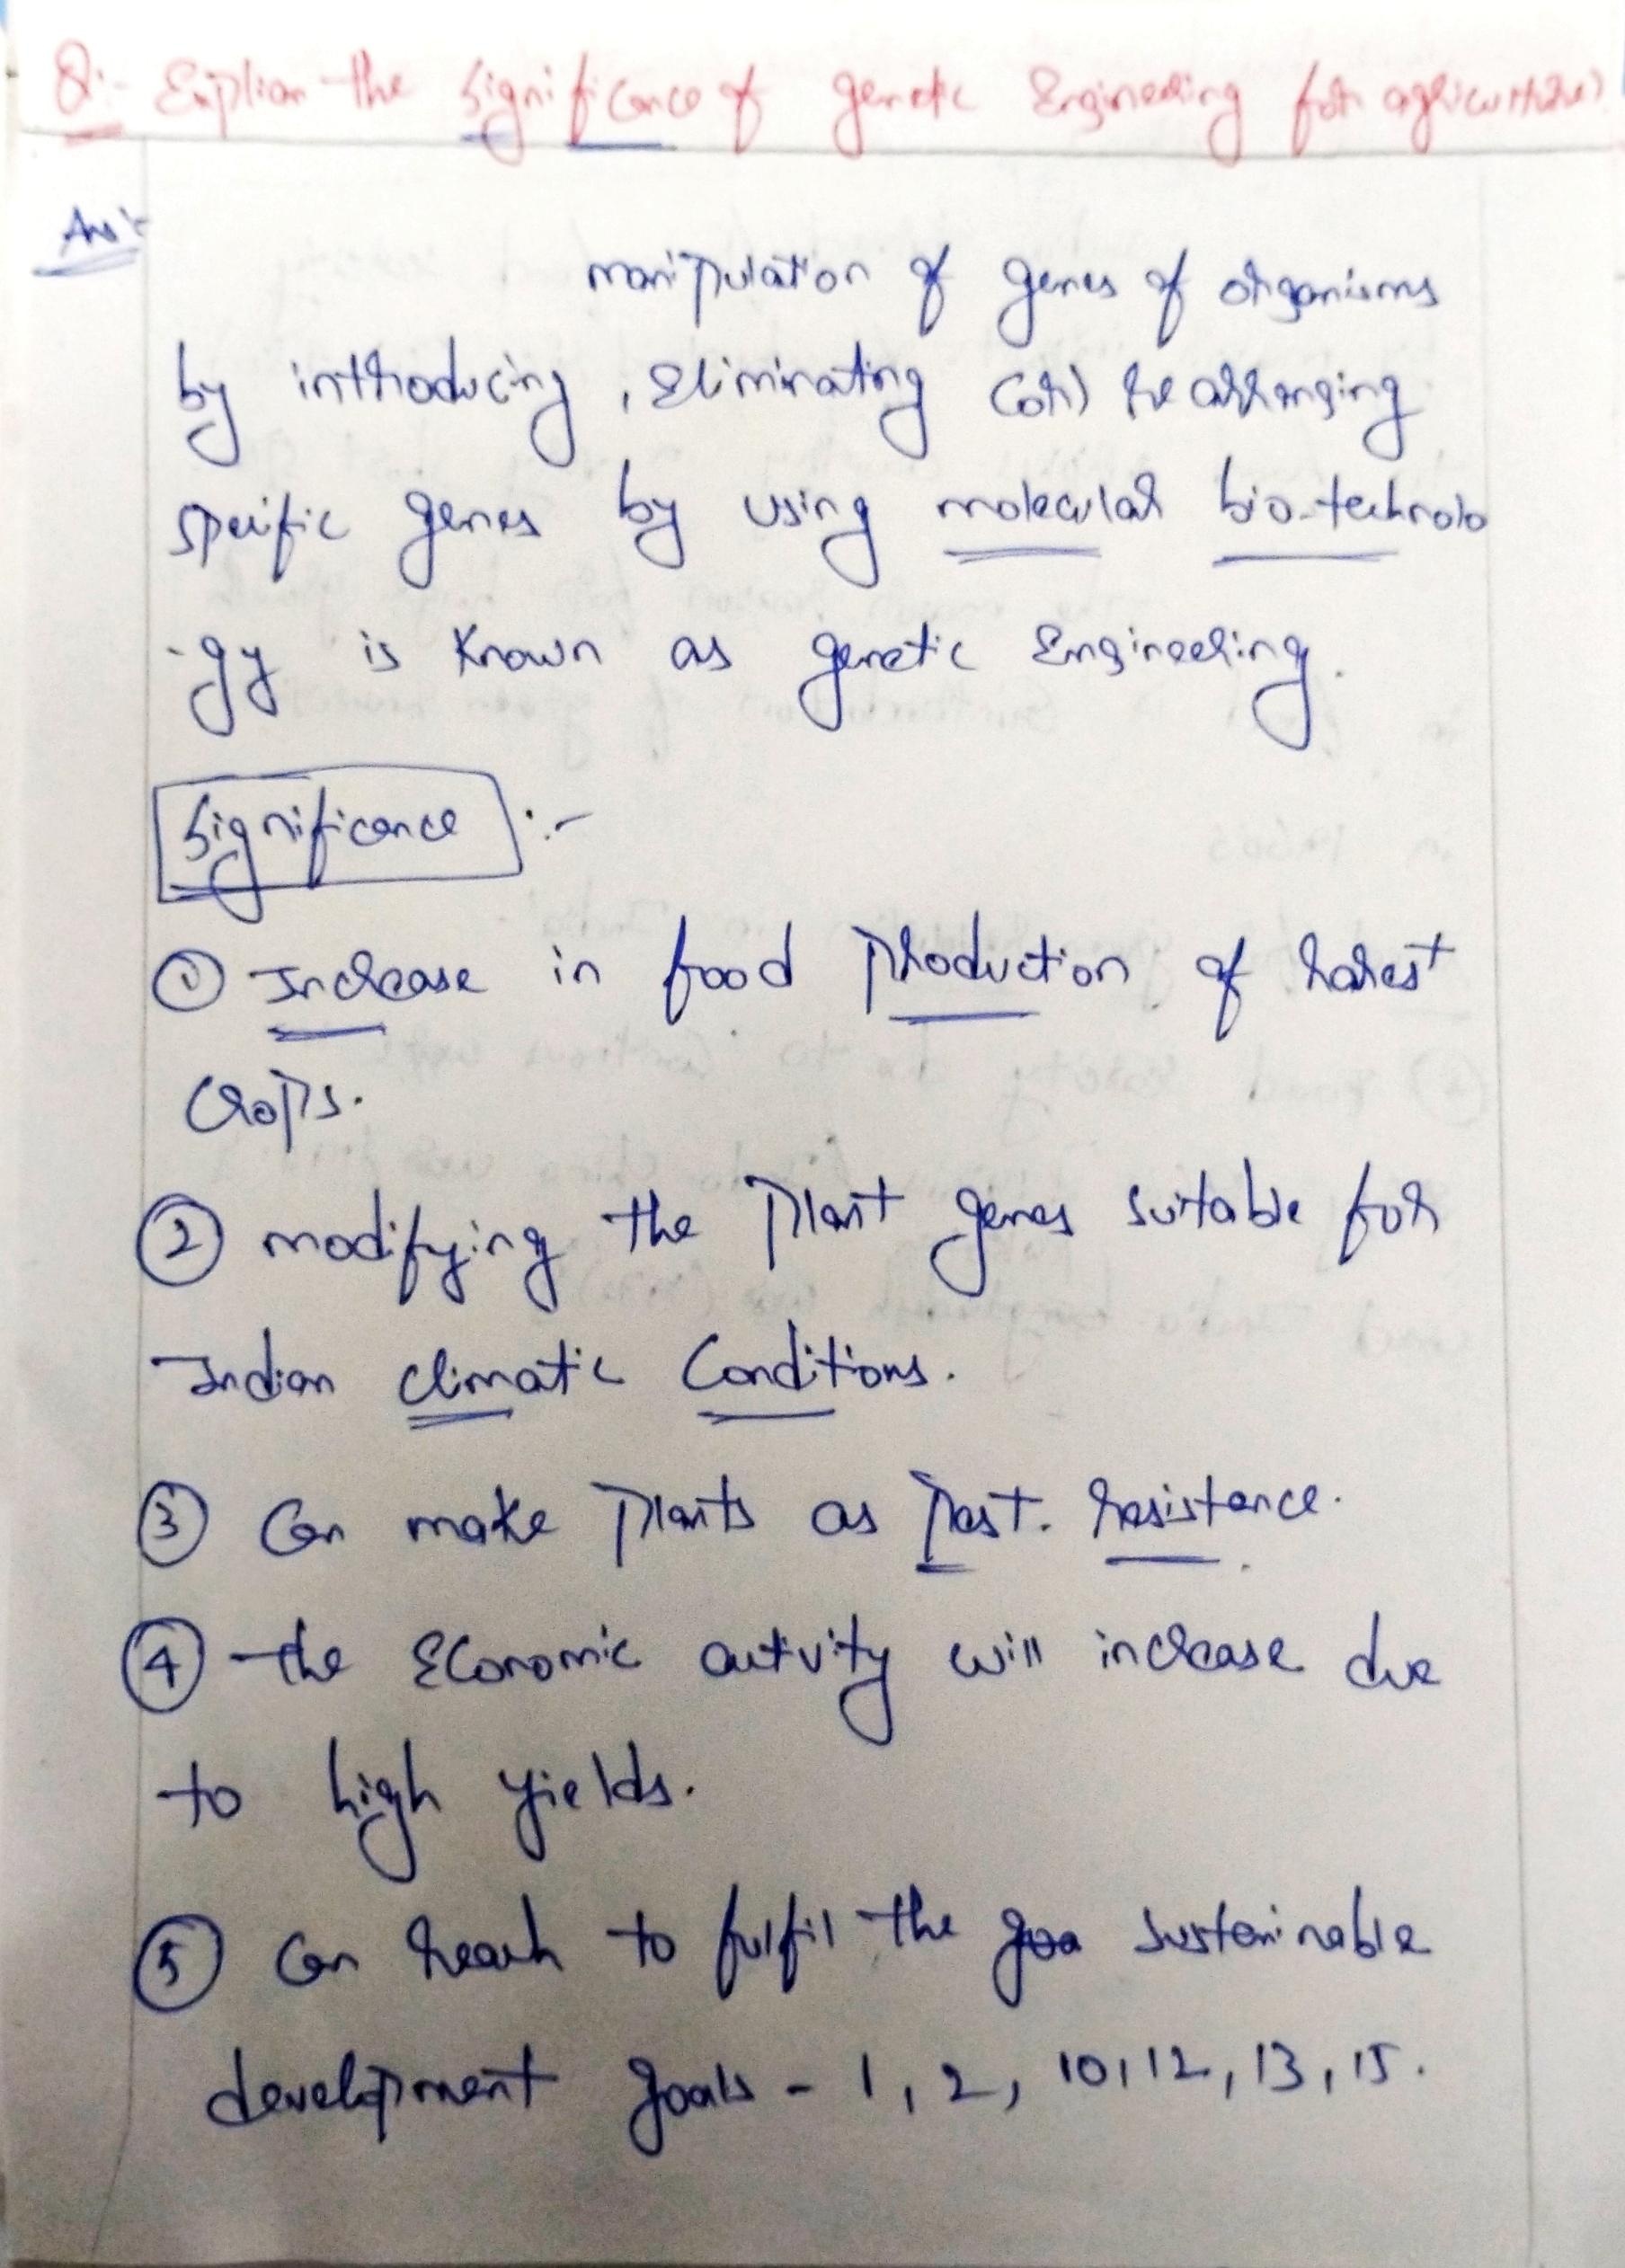 Q:- Explian the significance of genetic Engineering for agriculture?
Ans:-
manipulation of genes of organisms
by introducing, Eliminating (or) re arranging
specific genes by using molecular bio-technolo
-gy is known as genetic Engineering.
Significance :-
① Increase in food production of harest
crops.
② modifying the plant genes suitable for
Indian climatic conditions.
③ Can make plants as pest. resistance.
④ the Economic activity will increase due
to high yields.
⑤ Can reach to fulfil the goa sustainable
development goals - 1, 2, 10, 12, 13, 15.